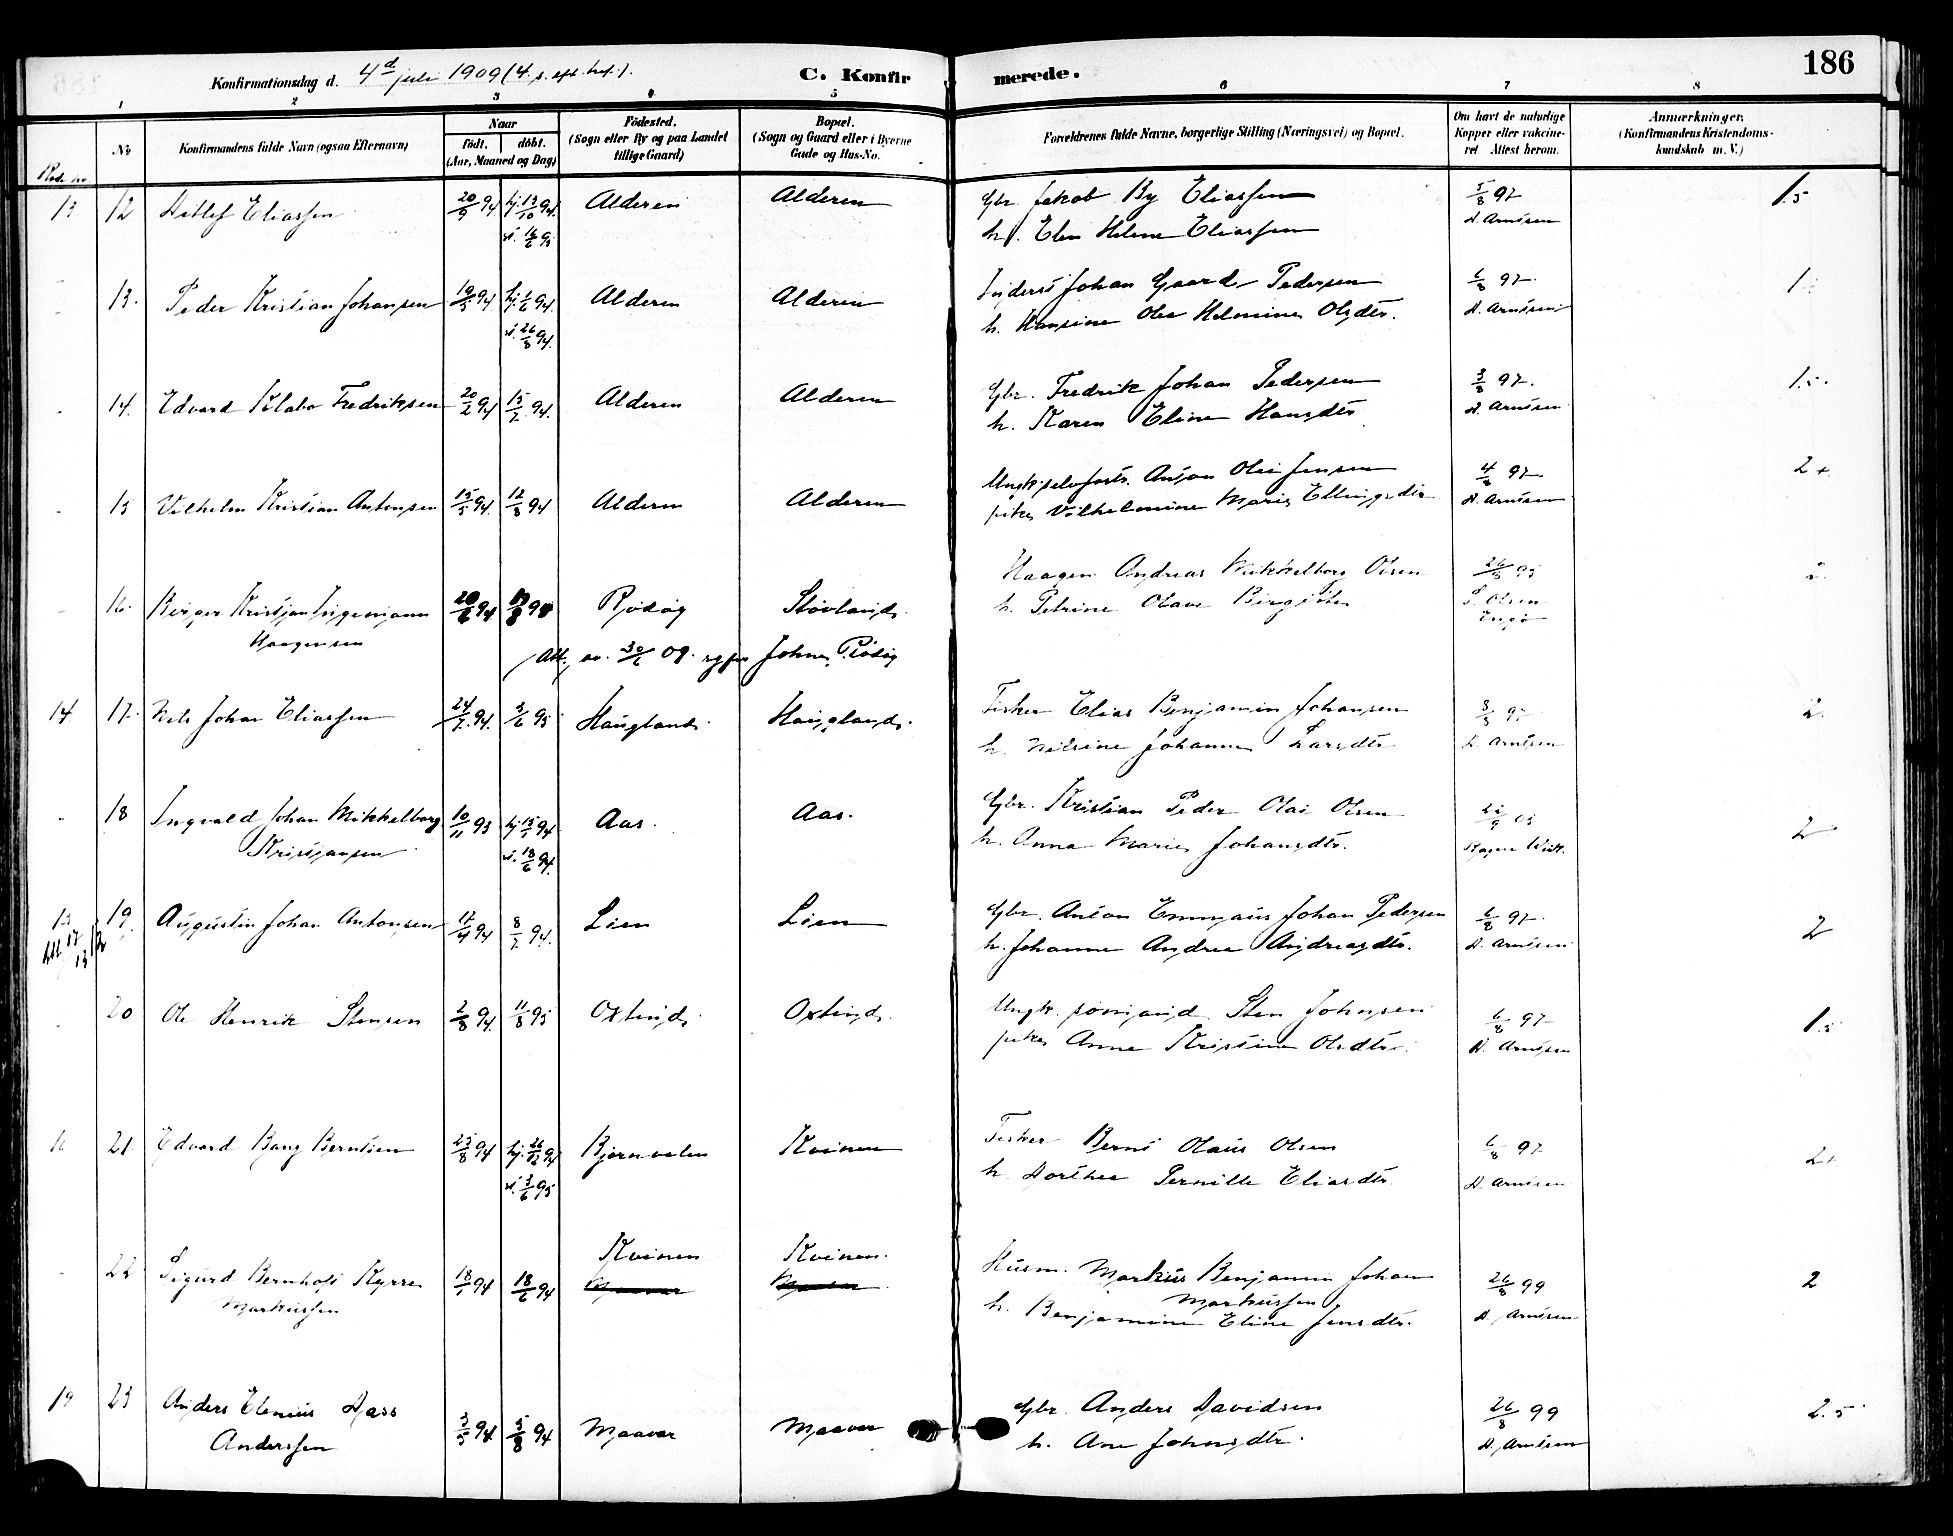 186
Konfirmationsdag d. 4d juli 1909 (4. s. eft. tref.).
C. Konfir
merede.
1 2 3 4 5 6 7 8
No
Konfirmandens fulde Navn (ogsaa Efternavn)
Naar
født. døbt.
(Aar, Maaned og Dag)
Fødested.
(Sogn eller By og paa Landet
tillige Gaard)
Bopæl.
(Sogn og Gaard eller i Byerne
Gade og Hus-No.
Forældrenes fulde Navne, borgerlige Stilling (Næringsvei) og Bopæl.
Om havt de naturlige
Kopper eller vakcine-
ret Attest herom.
Anmærkninger.
(Konfirmandens Kristendoms-
kundskab m. V.)
13 12 Ditlef Eliassen 20/9 94 hj. 13/10 94. Alderen Alderen Gbr. Jakob By Eliassen 5/8 97 1.5
st. 16/6 95 h. Elen Helene Eliassen A. Arntsen
13. Peder Kristian Johansen 19/5 94 hj. 1/6 94. Alderen Alderen Johan Gaard Pedersen 6/8 97 1
st. 26/8 94. h. Hansine Olea Helmine Olsdtr. A. Arntsen
14. Edvard Klabo Fredriksen 20/2 94 15/7 94. Alderen Alderen Gbr. Fredrik Johan Pedersen 3/8 97. 1.5.
h. Karen Eline Hansdtr A. Arntsen
15 Vilhelm Kristian Antonsen 15/5 94. 12/8 94 Alderen Alderen Ungk. Anton Olai Jensen 4/8 97 2+
pike Vilhelmine Marie Ellingsdtr A. Arntsen
16. Birger Kristjan Ingemann 20/6 94 94 Rødøy Støvland Haagen Andreas Mikkelborg Olsen 26/8 95 2.
Haagensen h. Petrine Olave Birgitte S. Olsen
Engø
Att. av. 30/6 09. Rødøy
14 17. Nils Johan Eliassen 24/7 94. 3/6 95 Haugland Haugland Fisker Elias Benjamin Johansen 8/8 97 2.
h. Nilsine Johanne Larsdtr A. Arntsen
18 Ingvald Johan Mikkelborg 10/11 93 hj. 94 Aas. Aas. Gbr. Kristian Peder Olai Olsen 2
Kristjansen st. 18/6 94. h. Anna Marie Johansdtr.
15 19. Augustin Johan Antonsen 17/4 94 8/7 94. Lien Lien Gbr. Anton Emmaus Johan Pedersen 6/8 97 2
h. Johanne Andrea Andreasdtr. A. Arntsen
20 Ole Henrik Stensen 2/8 94 11/8 95 Oxtind Oxtind Ungk. sømand Sten Johnsen 6/8 97 1.5
pike Anne Kristine Olsdtr. A. Arntsen
16 21 Edvard Bang Berntsen 25/8 94 hj. 26/12 94 Bjørnvalen Kvinen Fisker Bernt Olaus Olsen 6/8 97 2+
st. 3/6 95 h. Dorthea Pernille Eliasdtr. A. Arntsen
22 Sigurd Bernhoft Kyrre 94 18/6 94 Kvinen Kvinen. Husm. Markus Benjamin Johan 26/8 99 2
Markussen Maavær Maavær Markussen
h. Benjamine Eline Jensdtr. A. Arntsen
19 23 Anders Elenius Dass 3/5 94 5/8 94 Maavær Maavær Gbr. Anders Davidsen 26/8 99 2.5
Anderssen h. Ane Johnsdtr. A. Arntsen